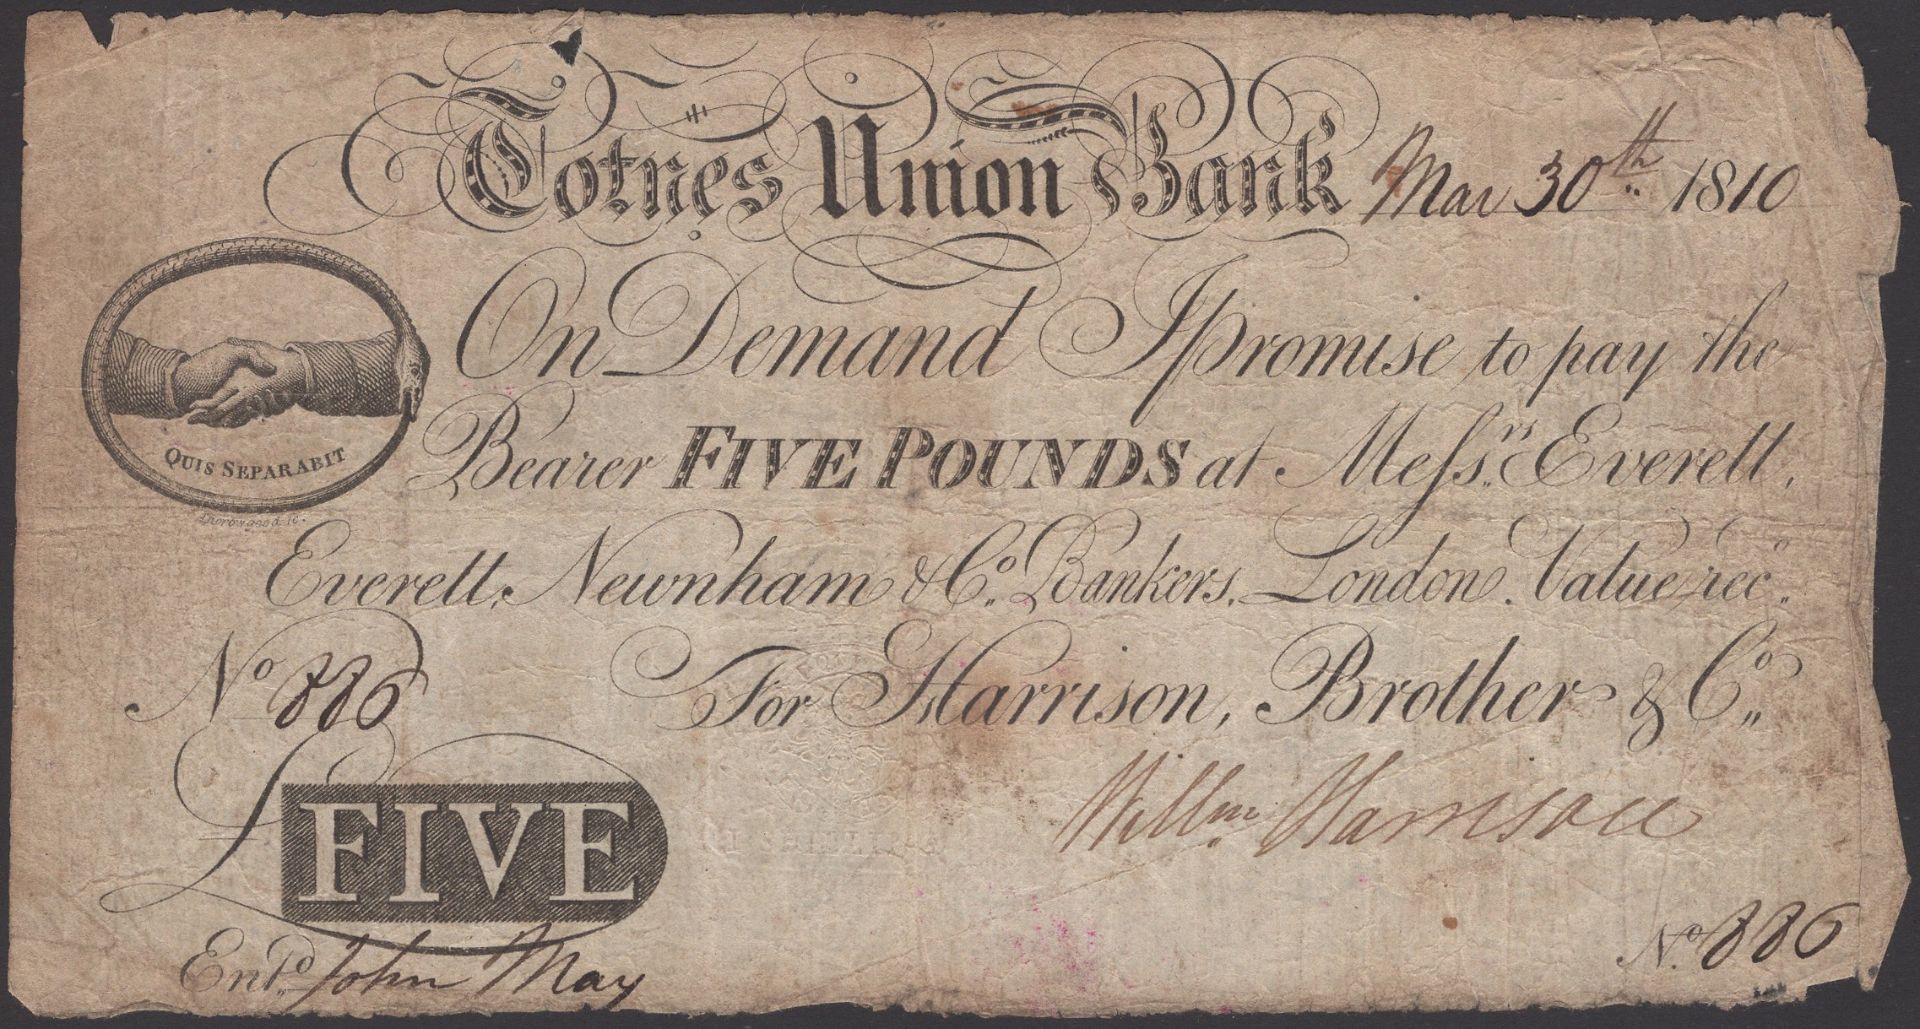 Totnes Union Bank Mar 30th 1810
On Demand I promise to pay the
Bearer FIVE POUNDS at Messrs Everett,
Everett, Newnham & Co. Bankers, London. Value rec.
QUIS SEPARABIT
Thorowgood sc.
No 886 For Harrison, Brother & Co.
Willm Harrison
£ FIVE
Entd John May
No 886